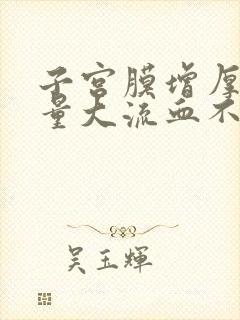 子宫膜增厚
量大流血不
吴玉辉